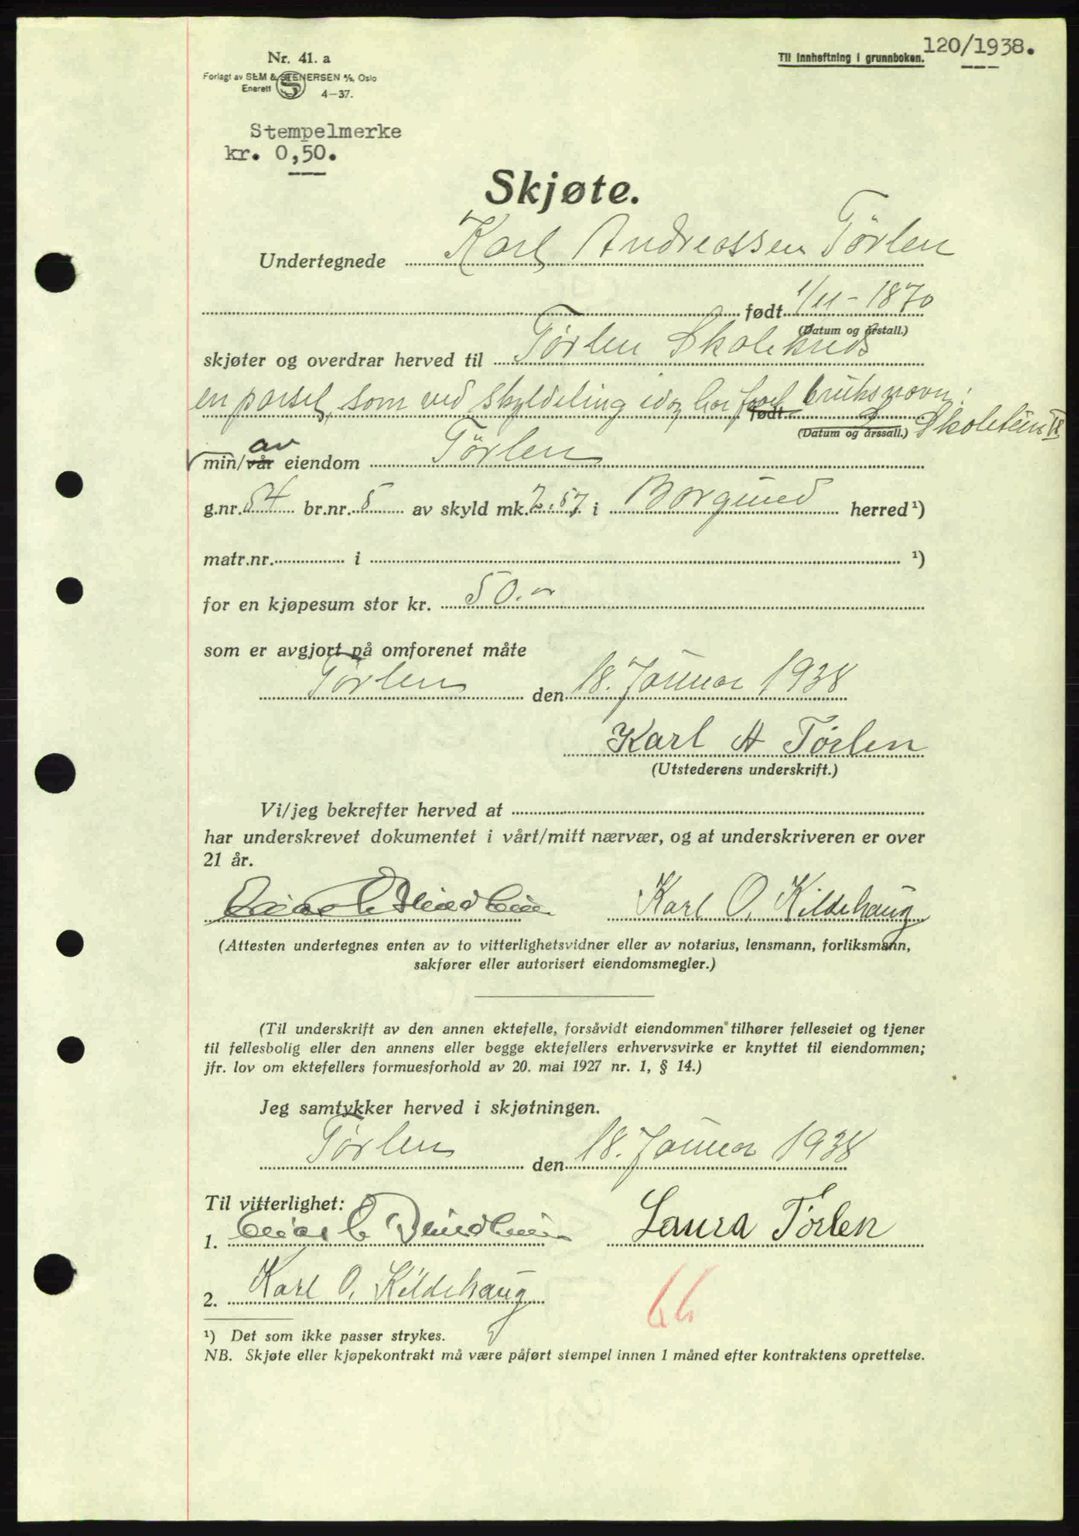 120/1938.
Nr. 41. a
Til innheftning i grunnboken.
Forlagt av SEM & STENERSEN A/S, Oslo
Enerett
4-37.
Stempelmerke
kr. 0,50.
Skjøte.
Undertegnede Karl Andreassen Tørlen
født 1/11-1870
(Datum og årstall.)
skjøter og overdrar herved til Tørlen Skolekreds
en parsel, som ved skyldeling idag har faat bruksnavn:
født
(Datum og årssall.) Skoletun II
min/vår av eiendom Tørlen
g.nr. 54 br.nr. 5 av skyld mk. 2.57 i Borgund herred ¹)
matr.nr. i ¹)
for en kjøpesum stor kr. 50.-
som er avgjort på omforenet måte
Tørlen den 18. Januar 1938
Karl A Tørlen
(Utstederens underskrift.)
Vi/jeg bekrefter herved at
har underskrevet dokumentet i vårt/mitt nærvær, og at underskriveren er over
21 år.
Karl O. Kildehaug
(Attesten undertegnes enten av to vitterlighetsvidner eller av notarius, lensmann, forliksmann,
sakfører eller autorisert eiendomsmegler.)
(Til underskrift av den annen ektefelle, forsåvidt eiendommen tilhører felleseiet og tjener
til fellesbolig eller den annens eller begge ektefellers erhvervsvirke er knyttet til eiendommen;
jfr. lov om ektefellers formuesforhold av 20. mai 1927 nr. 1, § 14.)
Jeg samtykker herved i skjøtningen.
Tørlen den 18. Januar 1938
Til vitterlighet:
1. Laura Tørlen
2. Karl O. Kildehaug
66
¹) Det som ikke passer strykes.
NB. Skjøte eller kjøpekontrakt må være påført stempel innen 1 måned efter kontraktens oprettelse.